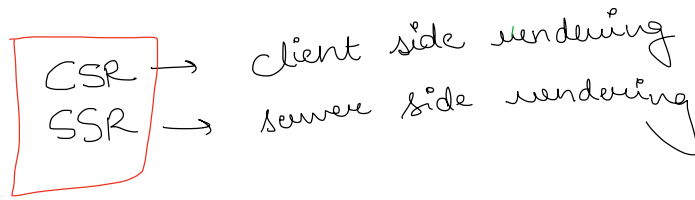 CSR → client side rendering
SSR → server side rendering